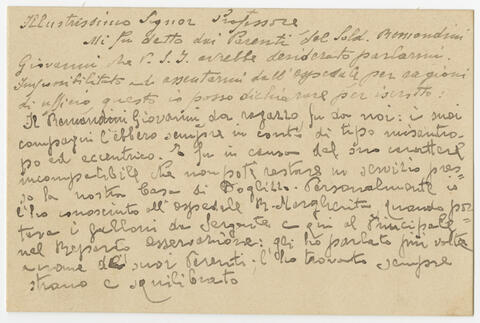 Illustrissimo Signor Professore
Mi fu detto dai Parenti del Sold. Bernardini
Giovanni che V. S. I. avrebbe desiderato parlarmi.
Impossibilitato ad assentarmi dall'Ospedale per ragioni
di ufficio questo io posso dichiarare per iscritto:
Il Bernardini Giovanni da ragazzo fu da noi: i suoi
compagni l'ebbero sempre in conto di tipo misantro-
po ed eccentrico. E fu in causa del suo carattere
incompatibile che non potè restare in servizio pres-
so la nostra Casa di Personalmente io
l'ho conosciuto all'ospedale R. Margherita quando por-
tava i galloni da Sergente e qui al Principale
nel Reparto osservazione: gli ho parlato più volte
a nome de' suoi Parenti; l'ho trovato sempre
strano e squilibrato